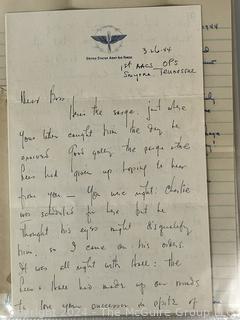 UNITED STATES ARMY AIR FORCE
3-26-44
1st AACS OPS
Smyrna, Tennessee
Dear Bos
Here's the serge, just where
Your letter caught him the day he
arrived. Good golly, the gange where
had given up hoping to hear
from you — You were right: Charlie
was scheduled for here but he
thought his eyes might disqualify
him, so I came on his orders.
It was all right with : the
& had made up our minds
to love your successor in spite of
2024 - The McGuire Group LLC